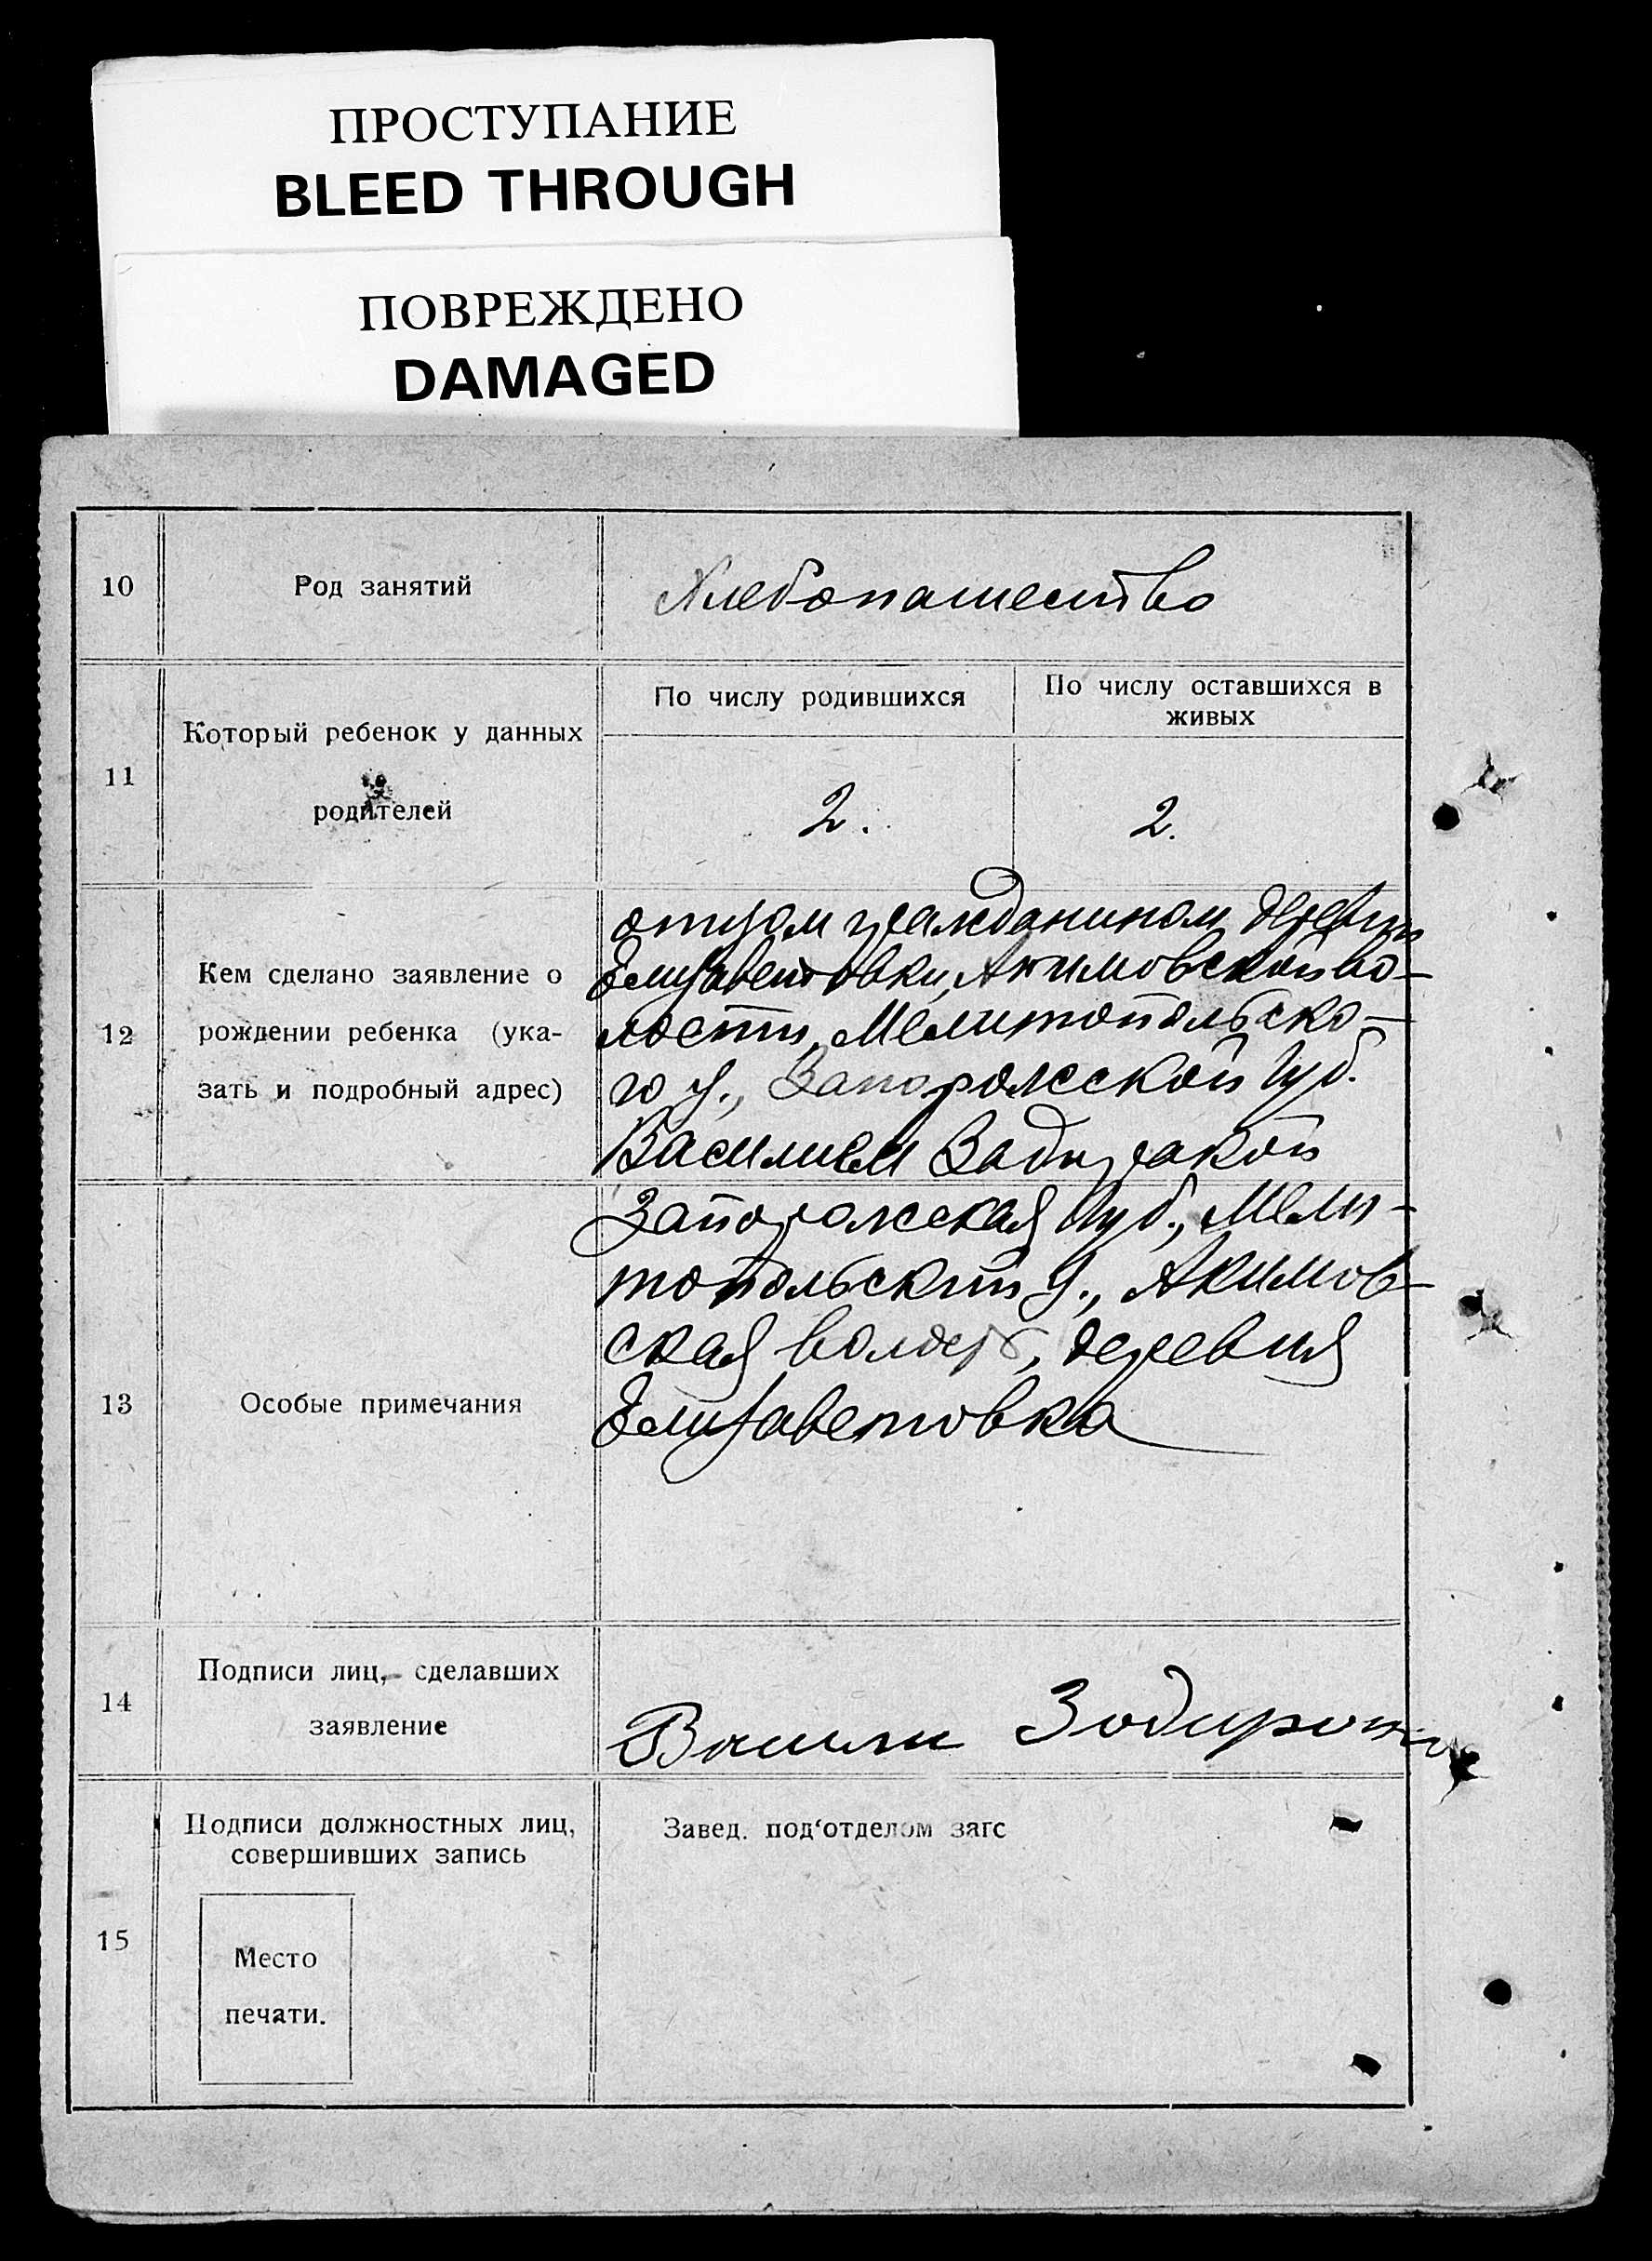 ПРОСТУПАНИЕ
BLEED THROUGH
ПОВРЕЖДЕНО
DAMAGED
10
Род занятий
Хлебопашество
11
Который ребенок у данных
родителей
По числу родившихся
По числу оставшихся в
живых
2.
2.
12
Кем сделано заявление о
рождении ребенка (ука-
зать и подробный адрес)
отцом гражданином деревни
Елизаветовки, Акимовской во-
лости, Мелитопольско-
го у., Запорожской губ.
Василием Задиракой
13
Особые примечания
Запорожская губ., Мели-
топольский у., Акимов-
ская волость, деревня
Елизаветовка
14
Подписи лиц, сделавших
заявление
Васили
15
Подписи должностных лиц,
совершивших запись
Место
печати.
Завед. под‘отделом загс